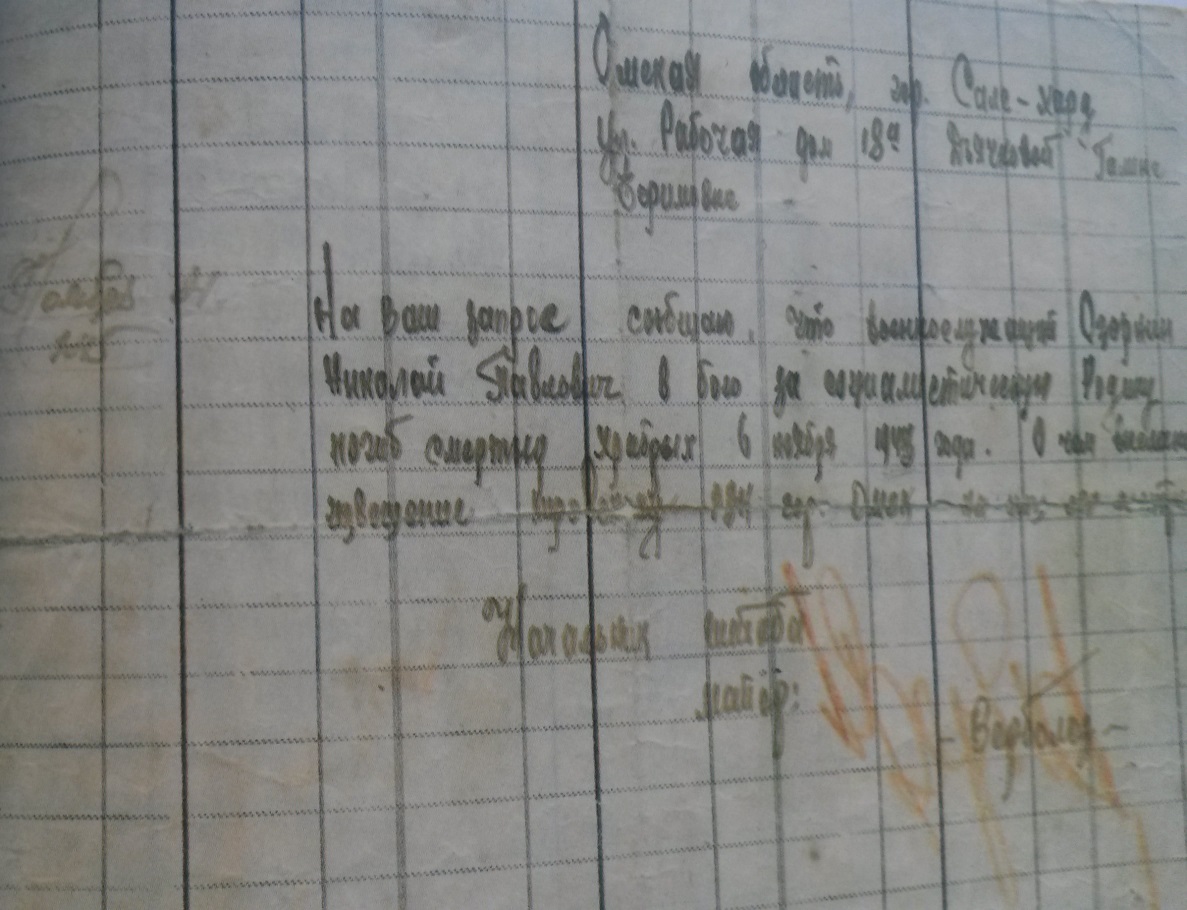 Омская область, гор. Сале-хард
Ул. Рабочая дом 18а Дьячковой Галине
Борисовне -
На Ваш запрос сообщаю, что военнослужащий
Николай Павлович, в бою за социалистическую Родину
погиб смертью храбрых 6 ноября 1943 года. О чем
извещение гор. Омск
Начальник штаба
майор:
- Верболоз -